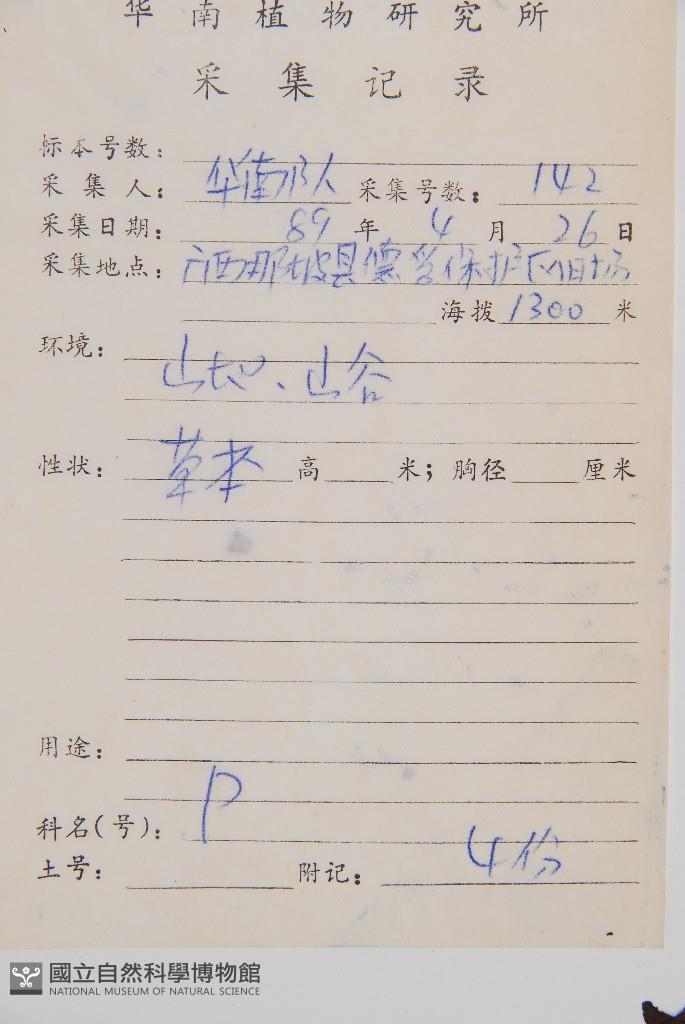 华南植物研究所
采集记录
标本号数：
采集人：华南队人 采集号数：142
采集日期：89年4月26日
采集地点：广西那坡县德孚保护区
海拨1300米
环境：山地、山谷
性状：草本 高 米；胸径 厘米
用途：
科名(号)：P
土号： 附记：4份
國立自然科學博物館
NATIONAL MUSEUM OF NATURAL SCIENCE